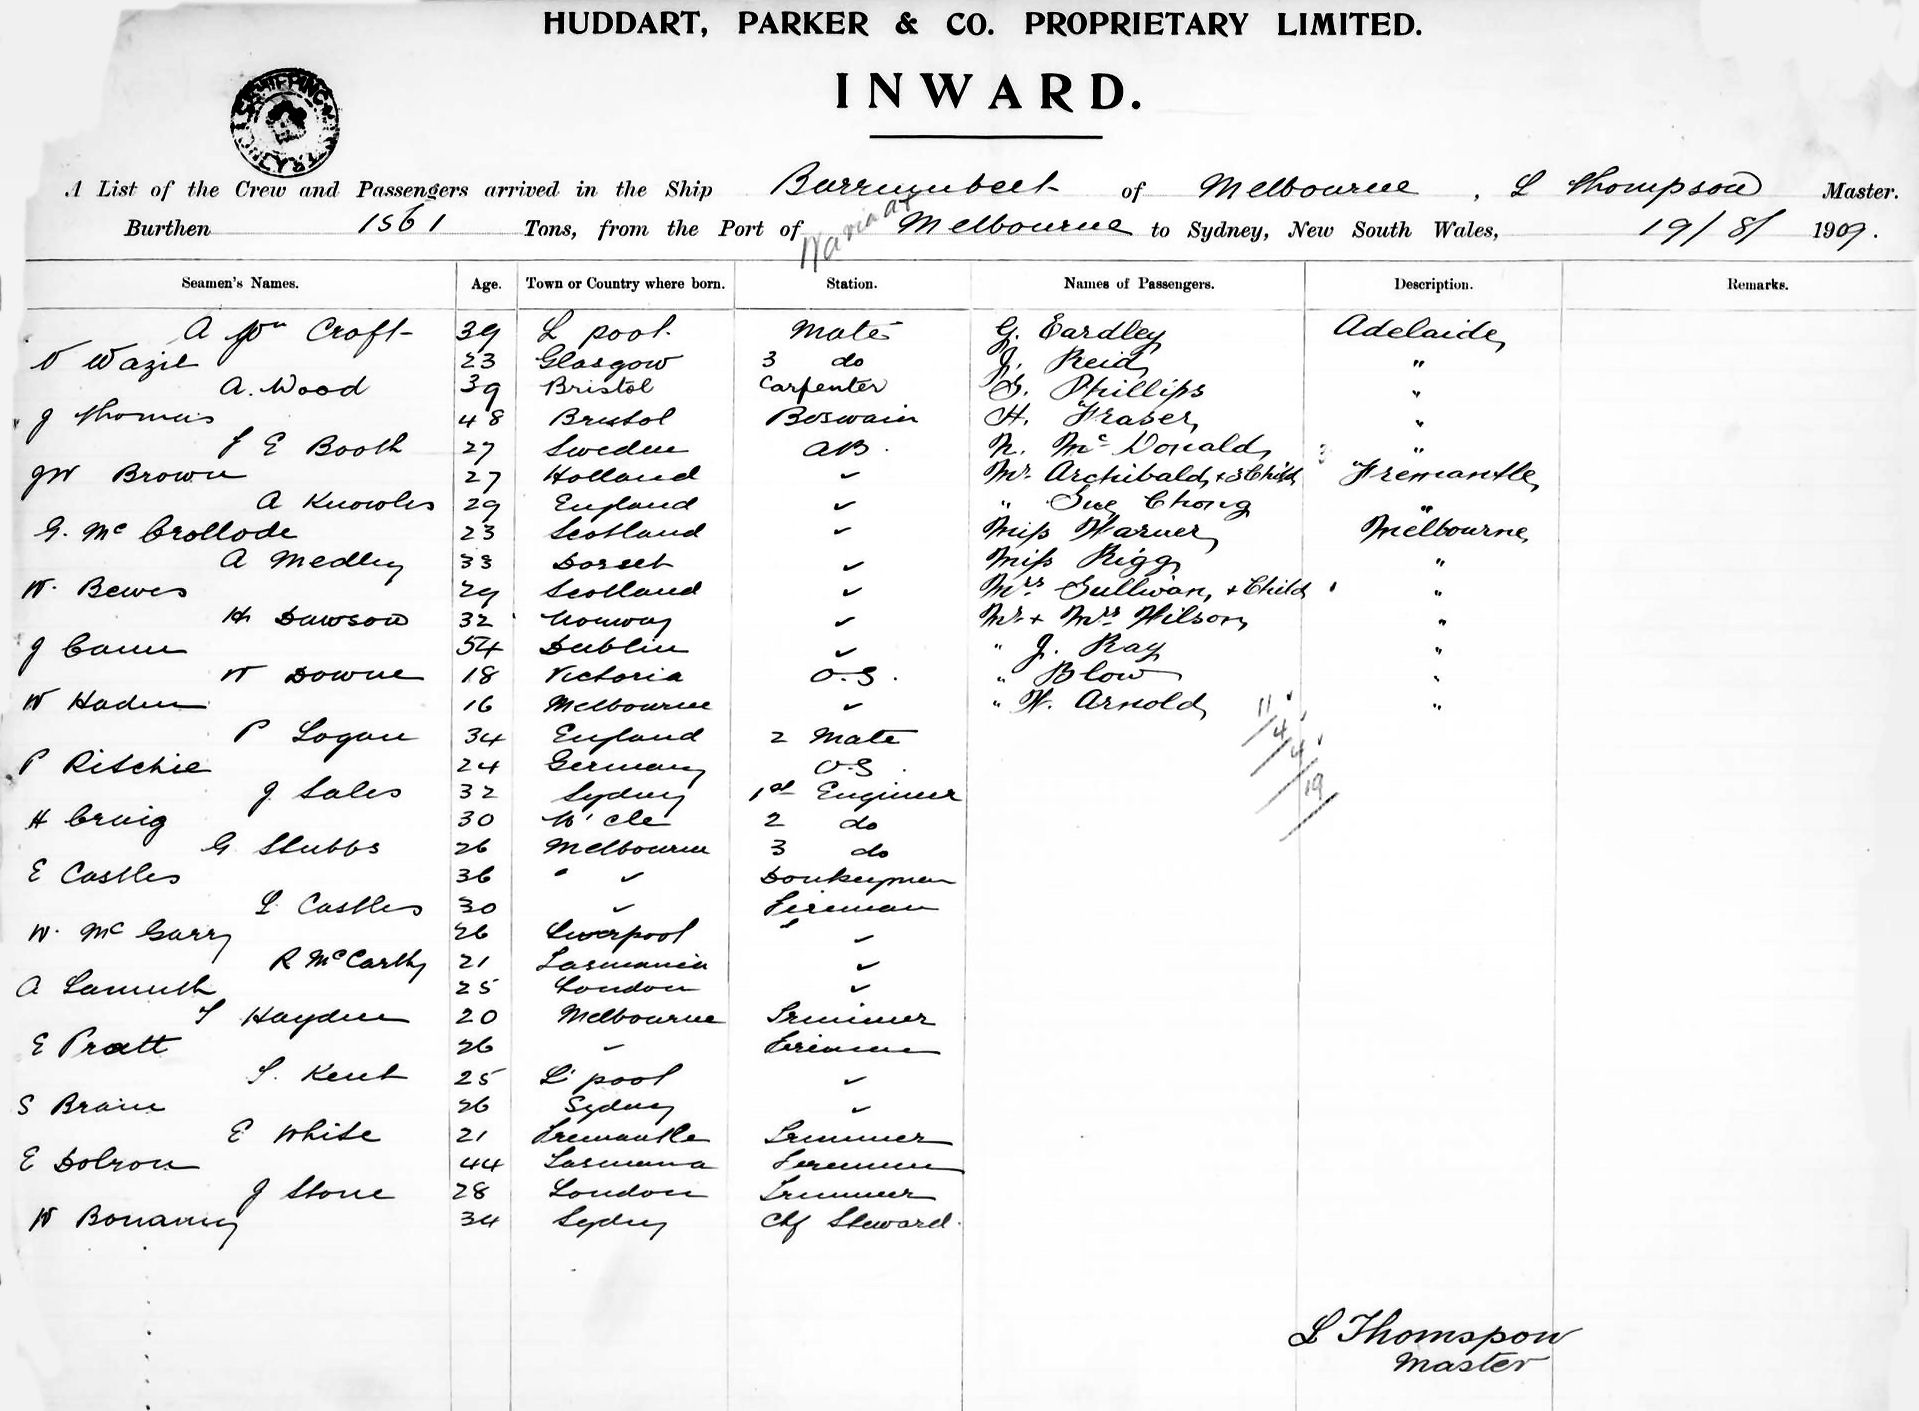 HUDDART, PARKER & CO. PROPRIETARY LIMITED.
INWARD.
A List of the Crew and Passengers arrived in the Ship Burrumbeet of Melbourne, L Thompson Master.
Burthen 1561 Tons, from the Port of Melbourne to Sydney, New South Wales, 19/8/1909.
Seamen's Names. Age. Town or Country where born. Station. Names of Passengers. Description. Remarks.
A Croft 39 L pool. Mate G. Eardley Adelaide
23 Glasgow 3 do J. Reid "
A. Wood 39 Bristol Carpenter S. Phillips "
J Thomas 48 Bristol Boswain H. Fraser "
J E Booth 27 Sweden AB. N. McDonald "
JW Brown 27 Holland ✓ Mr Archibald + 3 Child Fremantle
A Knowles 29 England ✓ " Sue Chong "
G. Mc Crollode 23 Scotland ✓ Miss Warner Melbourne
A Medley 33 Dorset ✓ Miss Rigg "
W. Bewes 29 Scotland ✓ Mrs Sullivan, + Child "
H Dawson 32 Norway ✓ Mr + Mrs Wilson "
J Cann 54 Dublin ✓ " J. Ray "
W Downe 18 Victoria O.S. " Blow "
W Haden 16 Melbourne ✓ " W. Arnold "
P Logan 34 England 2 Mate
P Ritchie 24 Germany O.S.
J Sales 32 Sydney 1st Engineer
H Craig 30 N'cle 2 do
G Stubbs 26 Melbourne 3 do
E Castles 36 " ✓ Donkeyman
L Castles 30 ✓ Fireman
W. McGarry 26 Liverpool " ✓
R McCarthy 21 Tasmania ✓
A Lamuth 25 London ✓
T Hayden 20 Melbourne Trimmer
E Pratt 26 ✓ Fireman
S. Kent 25 L'pool ✓
S Brain 26 Sydney ✓
E White 21 Fremantle Trimmer
E Dolron 44 Tasmania Fireman
J Stone 28 London Trimmer
W Bonamy 34 Sydney Chf Steward.
11/4/4/19
L Thomspon
Master